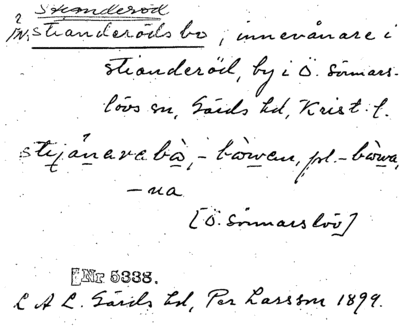 Stianderöd
? IN. stianderödsbo, innevånare i
stianderöd, by i Ö. Sönnars-
lövs sn, Gärds hd, Krist. l.
stijánarabò, -bòwen, pl. -bòwa,
-na
[Ö. Sönnarslöv]
[Nr 5338.
L A L. Gärds hd, Per Larsson 1899.